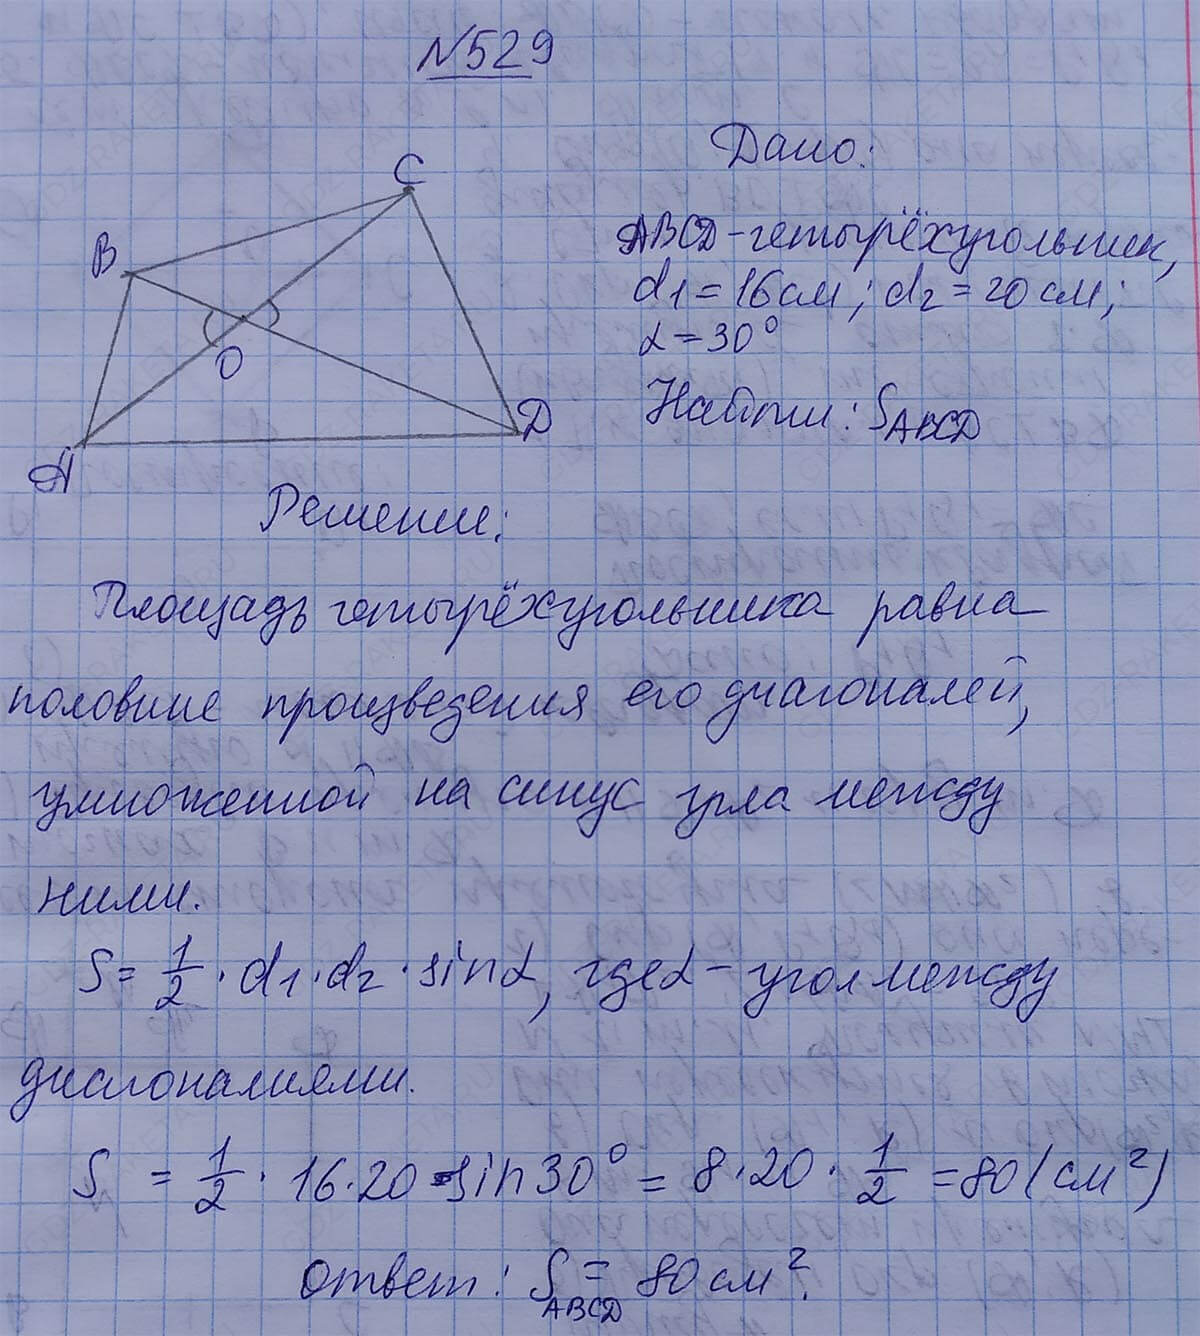 №529
C
B
O
D
A
Дано:
ABCD - четырёхугольник,
d1 = 16 см; d2 = 20 см;
α = 30°
Найти: SABCD
Решение:
Площадь четырёхугольника равна
половине произведения его диагоналей,
умноженной на синус угла между
ними.
S = 1/2 · d1 · d2 · sinα, где α - угол между
диагоналиями.
S = 1/2 · 16 · 20 · sin 30° = 8 · 20 · 1/2 = 80 (см²)
ответ: SABCD = 80 см².